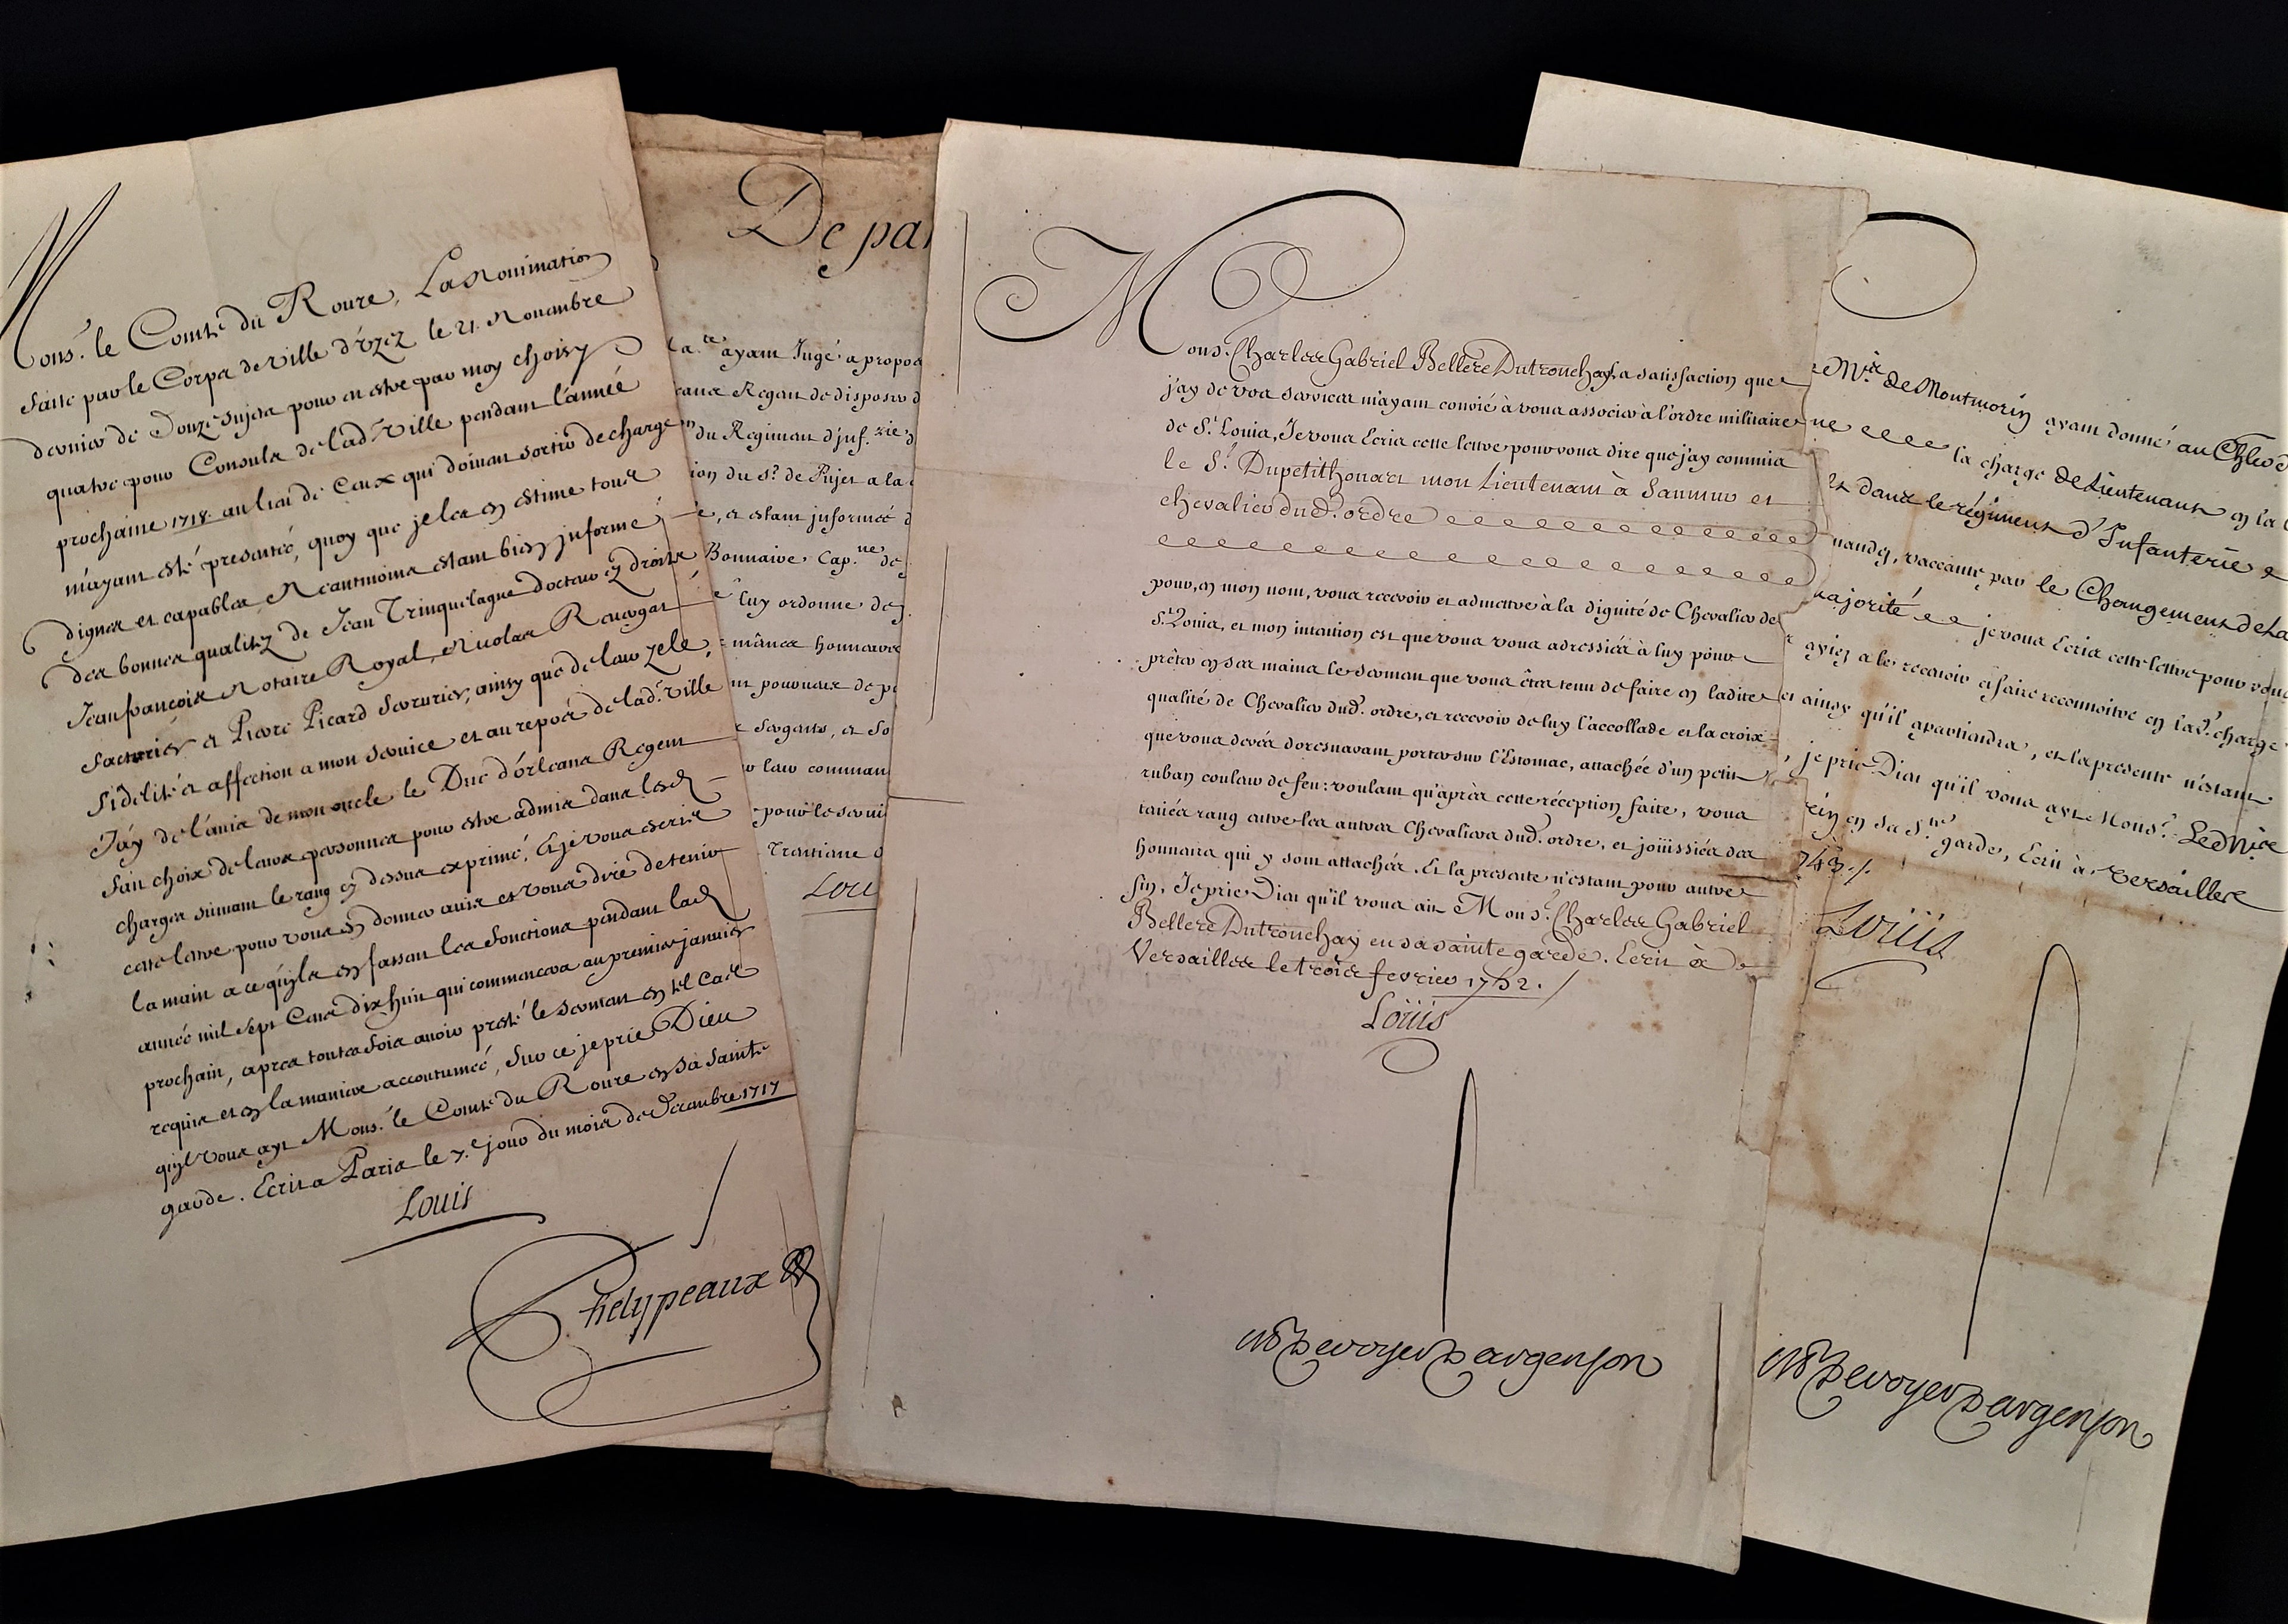 Mons.r le Comte du Roure, La Nomination
faitte par le Corps de ville d'Uzez le 21. Nouembre
dernier de Douze sujets pour en estre par moy choisy
quatre pour Consuls de lad.e Ville pendant l'année
prochaine 1718. au lieu de Ceux qui doiuent sortir de charge
m'ayant esté presentée, quoy que je les en estime tous
dignes et capables Neantmoins estant bien informé
des bonnes qualitez de Jean Trinquelague docteur en droits
Jean françois Notaire Royal, Nicolas
facturier et Pierre Picard Serrurier, ainsy que de leur zele,
fidelité et affection a mon seruice et au repos de lad.e ville
J'ay de l'auis de mon oncle le Duc d'orleans Regent
fait choix de leurs personnes pour estre admis dans lesd.
charges suiuant le rang cy dessus exprimé, Et je vous escris
cette lettre pour vous en donner auis et vous dire de tenir
la main a ce qu'ils en fassent les fonctions pendant lad.
année mil sept Cens dix huit qui commencera au premier januier
prochain, apres toutesfois auoir presté le serment en tel cas
requis et en la maniere accoutumée, Sur ce je prie Dieu
qu'il vous ayt Mons.r le Comte du Roure en sa sainte
garde. Ecrit a Paris le 7.e jour du mois de Decembre 1717
Louis
Phelypeaux
De par
Sa M.té ayant Jugé a propos
Regent de disposer d
du Regiment d'inf.rie d
ion du s.r de Pujet a la
e, et estant informée d
Bonnaire Cap.ne de
luy ordonne de
mânes honneurs
nt pouuoir de p
sergents, et so
leur comman
pour le serui
Traittane
Lou
Mons.r Charles Gabriel Bellere Dutronchay, la satisfaction que
j'ay de vos services m'ayant convié à vous associer à l'ordre militaire
de S.t Louis, Je vous Ecris cette lettre pour vous dire que j'ay commis
le S.r Dupetithouars mon Lieutenant à Saumur et
chevalier dud. ordre
pour, en mon nom, vous recevoir et admettre à la dignité de Chevalier de
S.t Louis, et mon intention est que vous vous adressiés à luy pour
prêter en ses mains le serment que vous êtes tenu de faire en ladite
qualité de Chevalier dud. ordre, et recevoir de luy l'accollade et la croix
que vous devrés doresnavant porter sur l'Estomac, attachée d'un petit
ruban couleur de feu: voulant qu'après cette réception faite, vous
teniés rang entre les autres Chevaliers dud. ordre, et joüissiés des
honneurs qui y sont attachés. Et la presente n'estant pour autre
fin, Je prie Dieu qu'il vous ait Mons.r Charles Gabriel
Bellere Dutronchay en sa sainte garde. Ecrit à
Versailles le trois fevrier 1752.
Loüis
MP De voyer D argenson
e M.is de Montmorin ayant donné au Ch.er d
ne la charge de Lieutenant en la
dans le régiment d'Infanterie
mandy, vaccante par le Changement de La
majorité je vous Ecris cette lettre pour vous
ayiez a le recevoir et faire reconnoitre en lad. charge
et ainsy qu'il apartiendra, et la presente n'estant
, je prie Dieu qu'il vous ayt Mons.r Le M.is
rin en sa S.te garde, Ecrit à Versailles
743./.
Loüis
MP De voyer D argenson